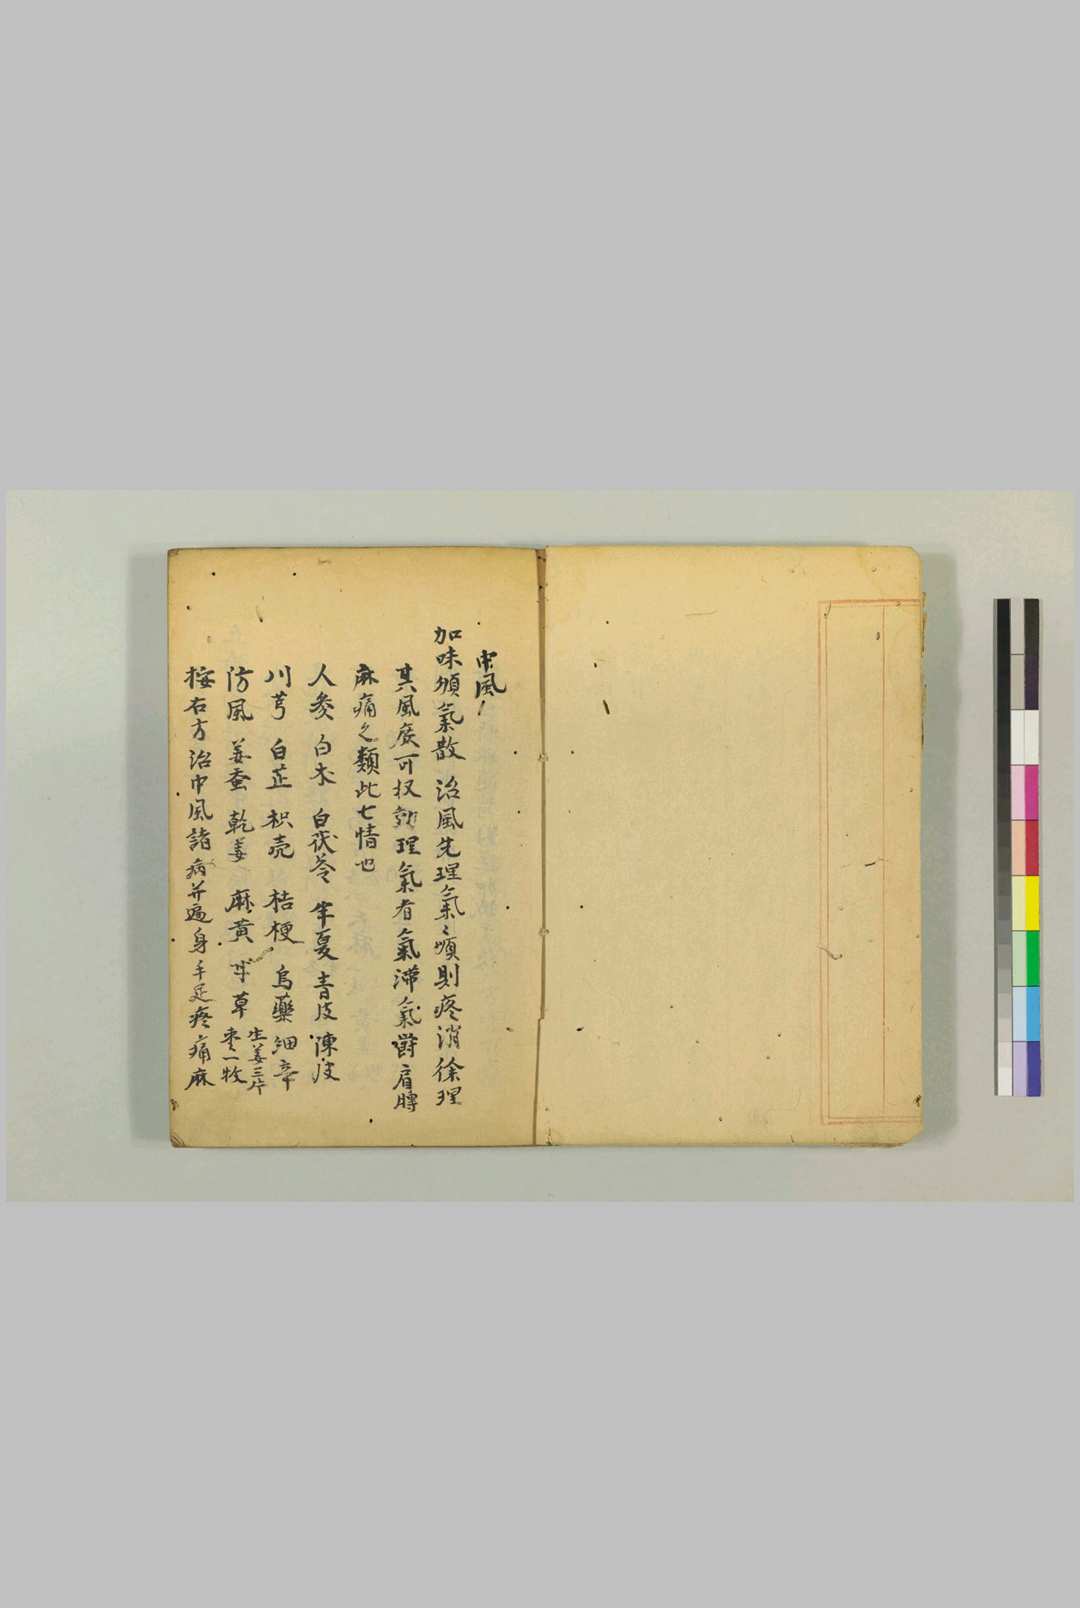 中風
加味順氣散 治風先理氣〻順則疼消徐理
其風庶可収効理氣者氣滯氣欝肩膊
麻痛之類此七情也
人参 白术 白茯苓 半夏 青皮 陳皮
川芎 白芷 枳壳 桔梗 烏藥 細辛
防風 姜蚕 乾姜 麻黄 甘草 生姜三片 枣一枚
按右方治中風諸病并遍身手足疼痛麻